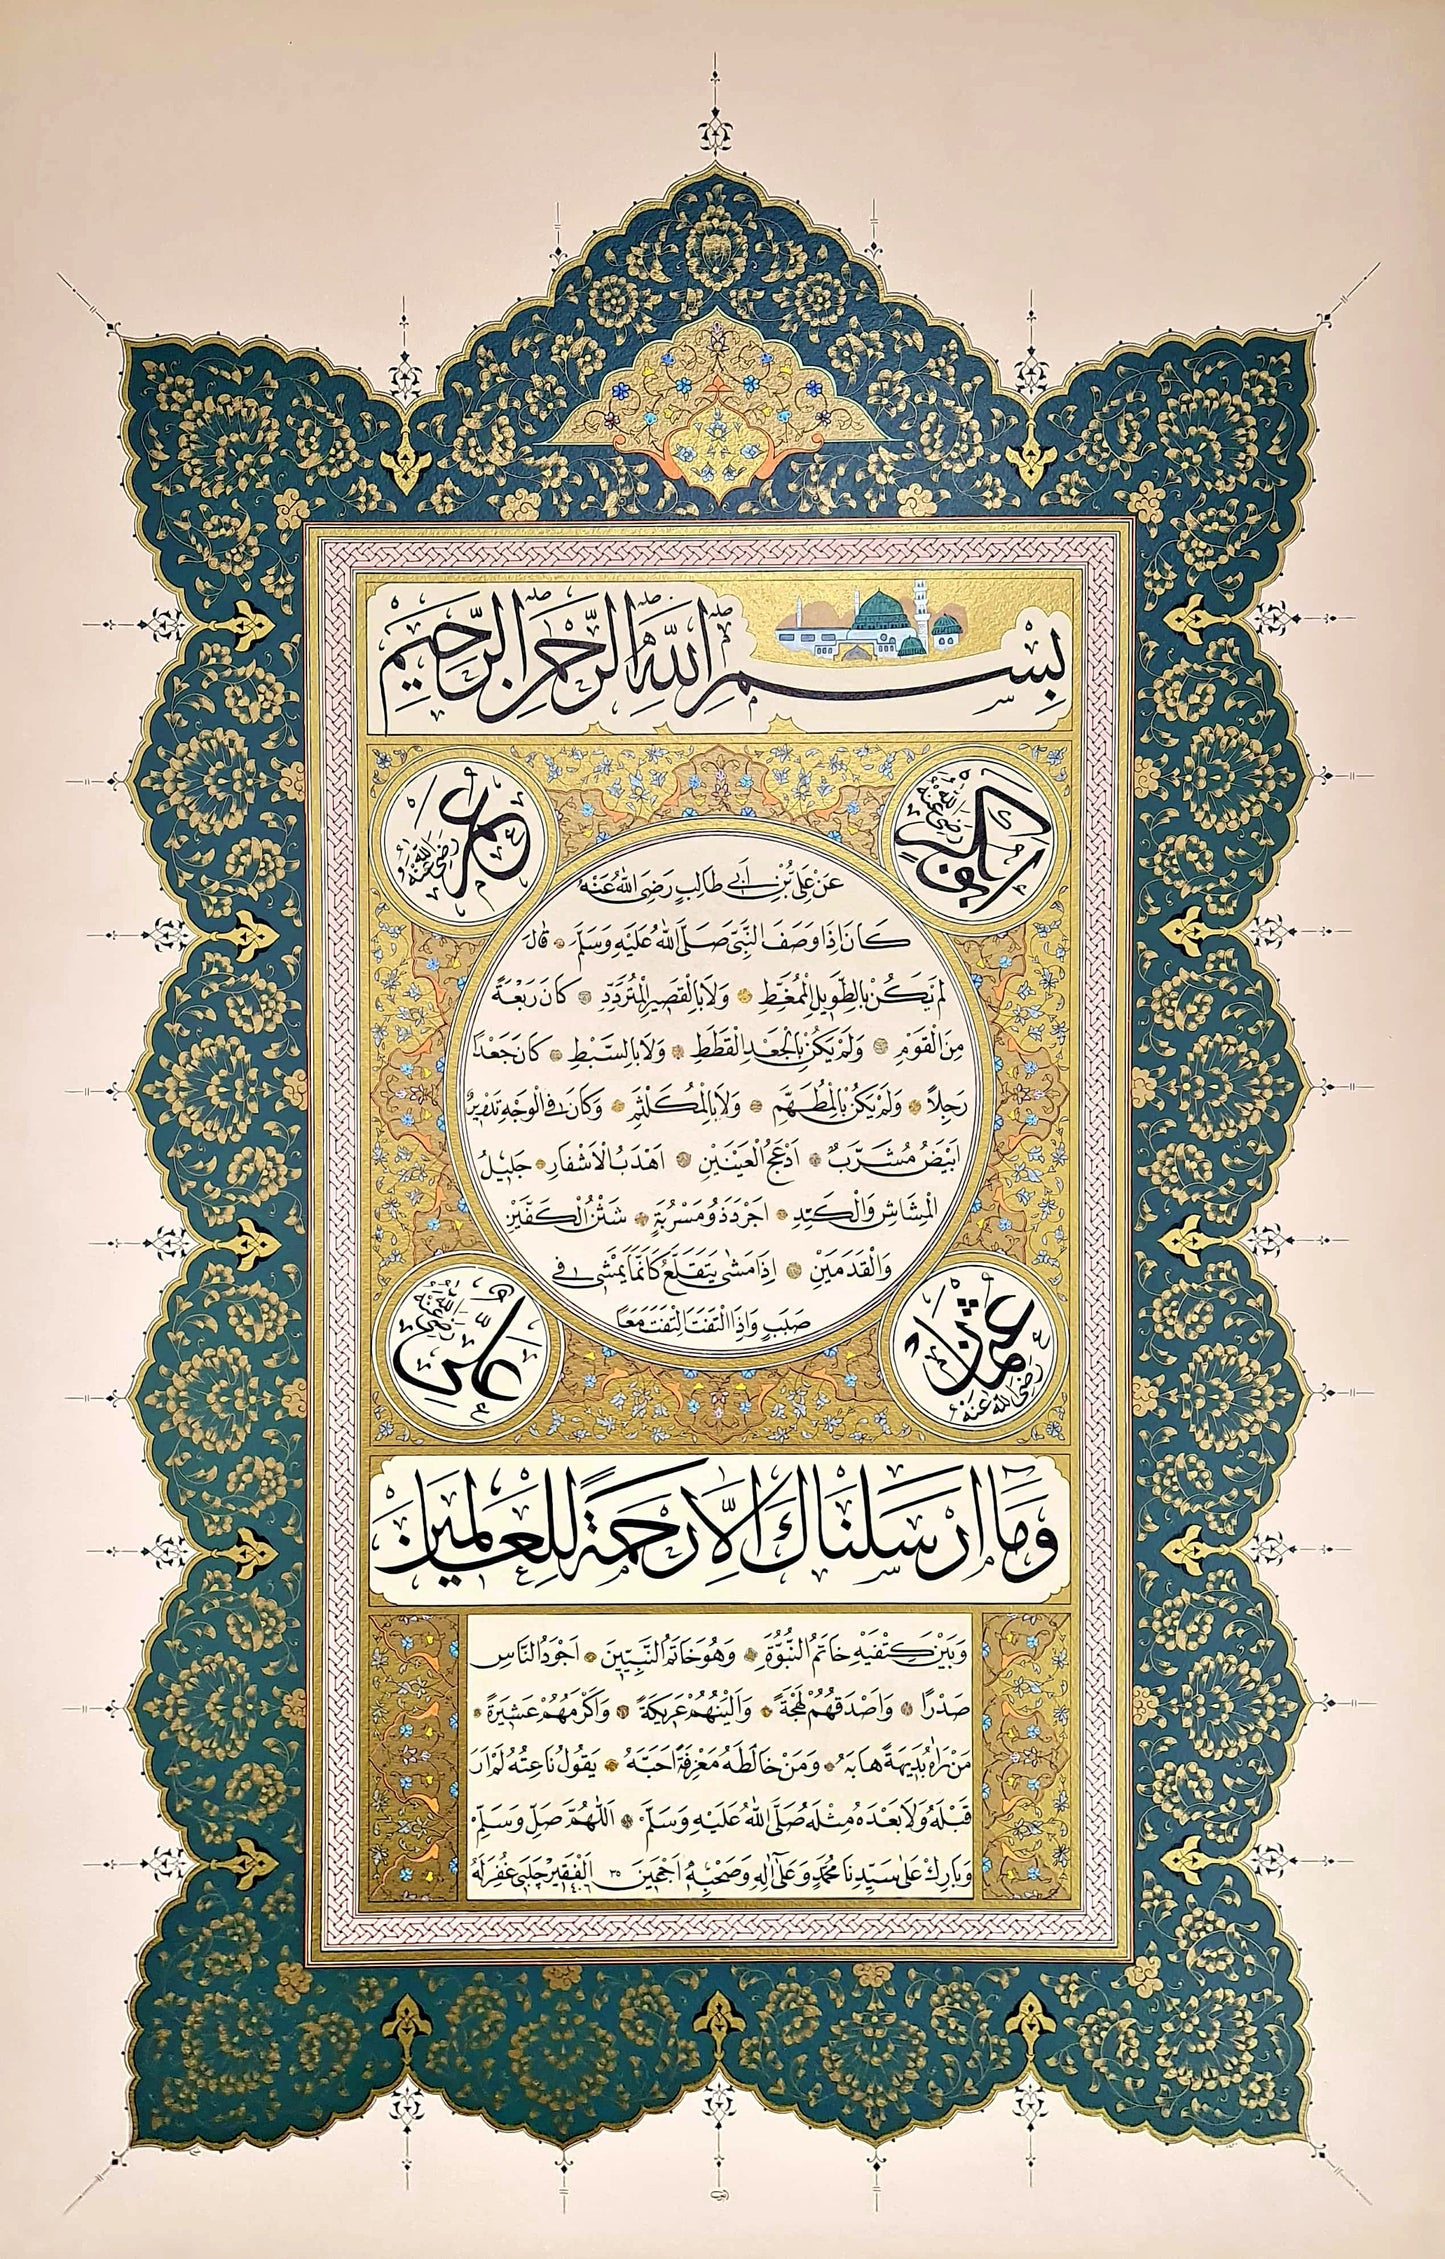 بِسْمِ اللّٰهِ الرَّحْمٰنِ الرَّحِيمِ
ابو بكر رَضِيَ اللّٰهُ عَنْهُ
عمر رَضِيَ اللّٰهُ عَنْهُ
عَنْ عَلِيِّ بْنِ اَبِي طَالِبٍ رَضِيَ اللّٰهُ عَنْهُ
كَانَ اِذَا وَصَفَ النَّبِيَّ صَلَّى اللّٰهُ عَلَيْهِ وَسَلَّمَ قَالَ
لَمْ يَكُنْ بِالطَّوِيلِ الْمُمَّغِطِ وَلَا بِالْقَصِيرِ الْمُتَرَدِّدِ كَانَ رَبْعَةً
مِنَ الْقَوْمِ وَلَمْ يَكُنْ بِالْجَعْدِ الْقَطَطِ وَلَا بِالسَّبْطِ كَانَ جَعْدًا
رَجِلًا وَلَمْ يَكُنْ بِالْمُطَهَّمِ وَلَا بِالْمُكَلْثَمِ وَكَانَ فِي الْوَجْهِ تَدْوِيرٌ
اَبْيَضُ مُشَرَّبٌ اَدْعَجُ الْعَيْنَيْنِ اَهْدَبُ الْاَشْفَارِ جَلِيلُ
الْمُشَاشِ وَالْكَتَدِ اَجْرَدُ ذُو مَسْرُبَةٍ شَثْنُ الْكَفَّيْنِ
وَالْقَدَمَيْنِ اِذَا مَشٰى يَتَقَلَّعُ كَاَنَّمَا يَمْشِي فِي
صَبَبٍ وَاِذَا الْتَفَتَ الْتَفَتَ مَعًا
عثمان رَضِيَ اللّٰهُ عَنْهُ
علي رَضِيَ اللّٰهُ عَنْهُ
وَمَا اَرْسَلْنَاكَ اِلَّا رَحْمَةً لِلْعَالَمِينَ
وَبَيْنَ كَتِفَيْهِ خَاتَمُ النُّبُوَّةِ وَهُوَ خَاتَمُ النَّبِيِّينَ اَجْوَدُ النَّاسِ
صَدْرًا وَاَصْدَقُهُمْ لَهْجَةً وَاَلْيَنُهُمْ عَرِيكَةً وَاَكْرَمُهُمْ عَشِيرَةً
مَنْ رَاٰهُ بَدِيهَةً هَابَهُ وَمَنْ خَالَطَهُ مَعْرِفَةً اَحَبَّهُ يَقُولُ نَاعِتُهُ لَمْ اَرَ
قَبْلَهُ وَلَا بَعْدَهُ مِثْلَهُ صَلَّى اللّٰهُ عَلَيْهِ وَسَلَّمَ اَللّٰهُمَّ صَلِّ وَسَلِّمْ
وَبَارِكْ عَلٰى سَيِّدِنَا مُحَمَّدٍ وَعَلٰى اٰلِهِ وَصَحْبِهِ اَجْمَعِينَ ٣٥ اَلْفَقِيرْ چَلَبِي غُفِرَ لَهُ